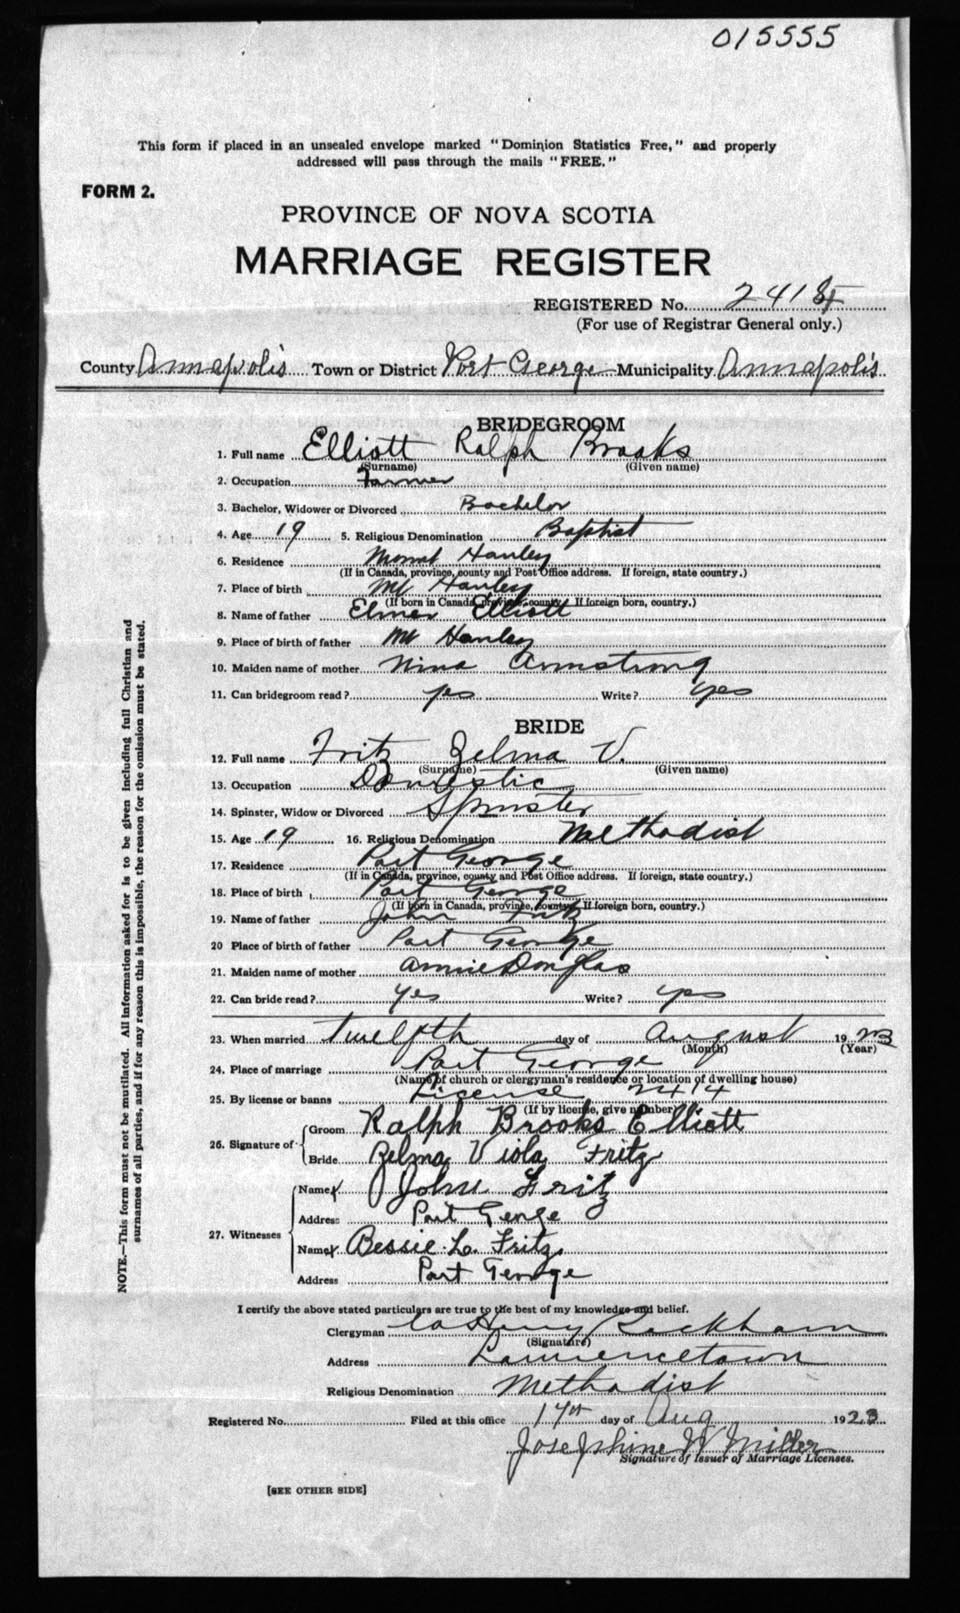 015555
This form if placed in an unsealed envelope marked "Dominion Statistics Free," and properly
addressed will pass through the mails "FREE."
FORM 2.
PROVINCE OF NOVA SCOTIA
MARRIAGE REGISTER
REGISTERED No. 241
(For use of Registrar General only.)
County Annapolis Town or District Port George Municipality Annapolis
BRIDEGROOM
1. Full name Elliott Ralph Brooks
(Surname) (Given name)
2. Occupation Farmer
3. Bachelor, Widower or Divorced Bachelor
4. Age 19 5. Religious Denomination Baptist
6. Residence Mount Hanley
(If in Canada, province, county and Post Office address. If foreign, state country.)
7. Place of birth Mt Hanley
(If born in Canada, province, county. If foreign born, country.)
8. Name of father Elmer Elliott
9. Place of birth of father Mt Hanley
10. Maiden name of mother Nina Armstrong
11. Can bridegroom read? yes Write? yes
BRIDE
12. Full name Fritz Zelma V.
(Surname) (Given name)
13. Occupation Domestic
14. Spinster, Widow or Divorced Spinster
15. Age 19 16. Religious Denomination Methodist
17. Residence Port George
(If in Canada, province, county and Post Office address. If foreign, state country.)
18. Place of birth Port George
(If born in Canada, province, county. If foreign born, country.)
19. Name of father John Fritz
20 Place of birth of father Port George
21. Maiden name of mother Annie Douglas
22. Can bride read? yes Write? yes
23. When married twelfth day of August 1923
(Month) (Year)
24. Place of marriage Port George
(Name of church or clergyman's residence or location of dwelling house)
25. By license or banns License 2414
(If by license, give number)
26. Signature of Groom Ralph Brooks Elliott
Bride Zelma Viola Fritz
27. Witnesses Name John Fritz
Address Port George
Name Bessie L. Fritz
Address Port George
I certify the above stated particulars are true to the best of my knowledge and belief.
Clergyman Henry
(Signature)
Address Lawrencetown
Religious Denomination Methodist
Registered No. Filed at this office 17th day of Aug 1923
Josephine W Miller
Signature of Issuer of Marriage Licenses.
[SEE OTHER SIDE]
NOTE.—This form must not be mutilated. All information asked for is to be given including full Christian and
surnames of all parties, and if for any reason this is impossible, the reason for the omission must be stated.